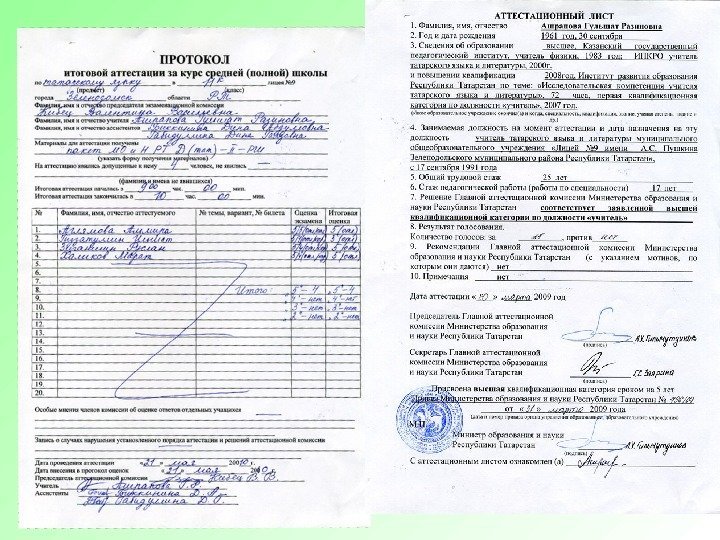 ПРОТОКОЛ
итоговой аттестации за курс средней (полной) школы
по татарскому языку в лицея №9
(предмет) (класс)
города Зеленодольск области РТ
Фамилия, имя и отчество председателя экзаменационной комиссии
Фамилия, имя и отчество учителя Ашрапова Гульшат Разиновна
Фамилия, имя и отчество ассистентов
Материалы для аттестации получены
пакет МО и Н РТ
(указать форму получения материалов)
На аттестацию явились допущенные к нему 4 человек, не явились
(фамилии и имена не явившихся)
Итоговая аттестация началась в 9 00 час. 00 мин.
Итоговая аттестация закончилась в 10 час. 00 мин.
№ Фамилия, имя, отчество аттестуемого № темы, вариант, № билета Оценка экзамена Итоговая оценка
1.
2.
3.
4. Халиков Марат
5.
6.
7.
8. Итого: "5"- 4 "5"- 4
9. "4"- нет "4"- нет
10. "3"- нет "3"- нет
11. "2"- нет "2"- нет
12.
13.
14.
15.
16.
17.
18.
19.
20.
Особые мнения членов комиссии об оценке ответов отдельных учащихся
Запись о случаях нарушения установленного порядка аттестации и решений аттестационной комиссии
Дата проведения аттестации «21» мая
Дата внесения в протокол оценок «21» мая
Председатель аттестационной комиссии
Учитель Ашрапова Г.Р.
Ассистенты
АТТЕСТАЦИОННЫЙ ЛИСТ
1. Фамилия, имя, отчество Ашрапова Гульшат Разиновна
2. Год и дата рождения 1961 год, 30 сентября
3. Сведения об образовании высшее, Казанский государственный
педагогический институт, учитель физики, 1983 год; ИПКРО учитель
татарского языка и литературы, 2000г.
и повышении квалификации 2008год, Институт развития образования
Республики Татарстан по теме: «Исследовательская компетенция учителя
татарского языка и литературы», 72 часа, первая квалификационная
категория по должности «учитель», 2007 год.
4. Занимаемая должность на момент аттестации и дата назначения на эту
должность учитель татарского языка и литературы муниципального
общеобразовательного учреждения «Лицей №9 имени А.С. Пушкина
Зеленодольского муниципального района Республики Татарстан»,
с 17 сентября 1991 года
5. Общий трудовой стаж 25 лет
6. Стаж педагогической работы (работы по специальности) 17 лет
7. Решение Главной аттестационной комиссии Министерства образования и
науки Республики Татарстан соответствует заявленной высшей
квалификационной категории по должности «учитель»
8. Результат голосования.
Количество голосов: за , против нет
9. Рекомендации Главной аттестационной комиссии Министерства
образования и науки Республики Татарстан (с указанием мотивов, по
которым они даются) нет
10. Примечания нет
Дата аттестации «10» марта 2009 год
Председатель Главной аттестационной
комиссии Министерства образования
и науки Республики Татарстан
(подпись)
Секретарь Главной аттестационной
комиссии Министерства образования
и науки Республики Татарстан
(подпись)
Присвоена высшая квалификационная категория сроком на 5 лет
Приказ Министерства образования и науки Республики Татарстан №
от «31» марта 2009 года
М.П.
Министр образования и науки
Республики Татарстан
(подпись)
С аттестационным листом ознакомлен (а)